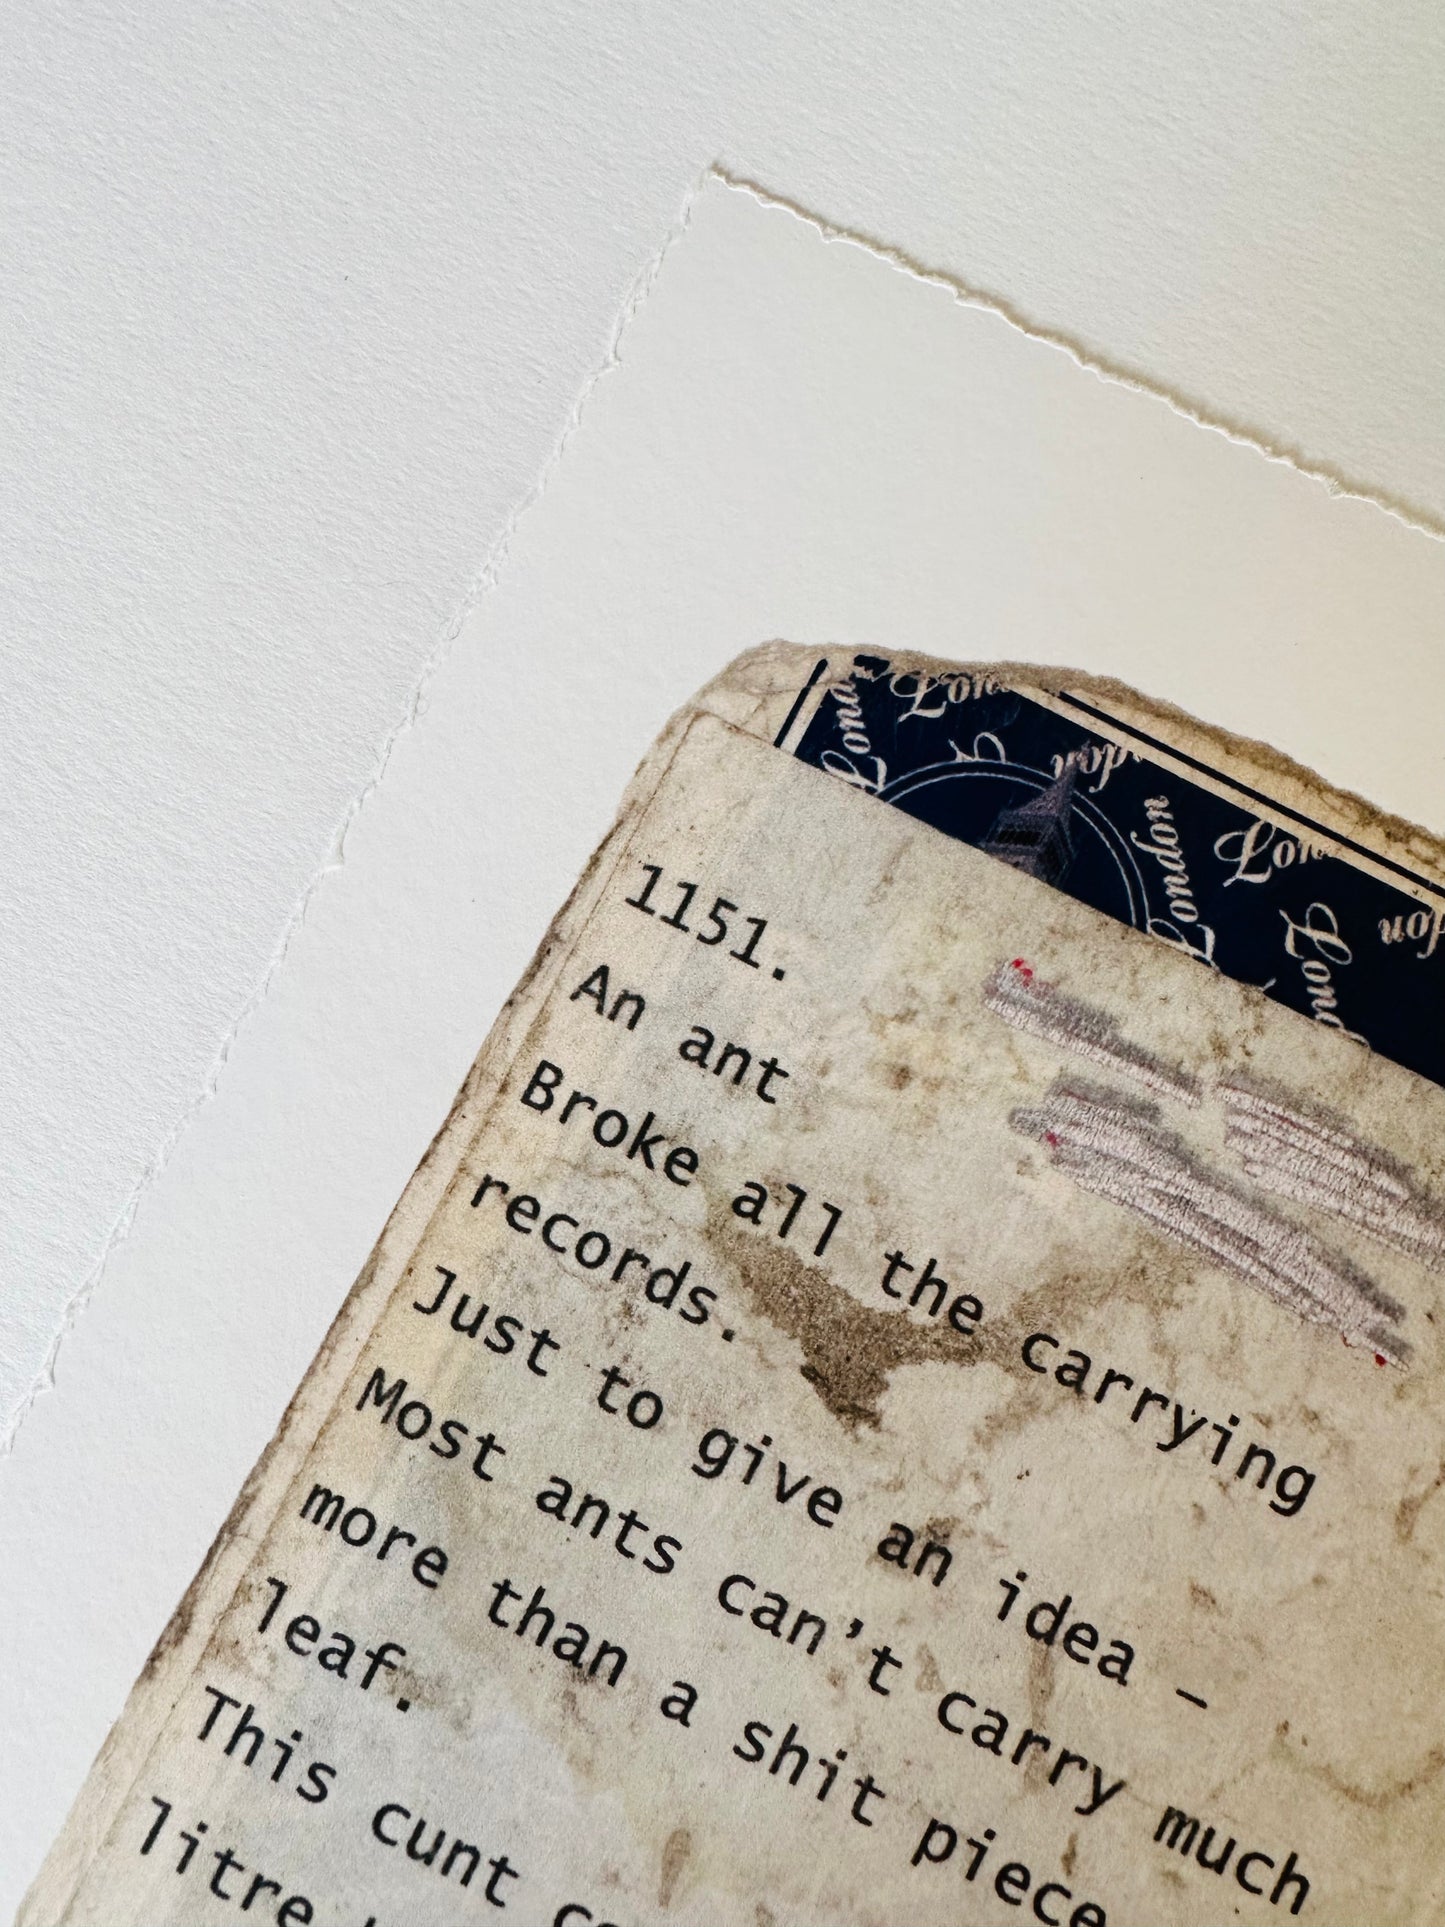 London
London
London
London
London
1151.
An ant
Broke all the carrying
records.
Just to give an idea –
Most ants can’t carry much
more than a shit piece
leaf.
This cunt
litre